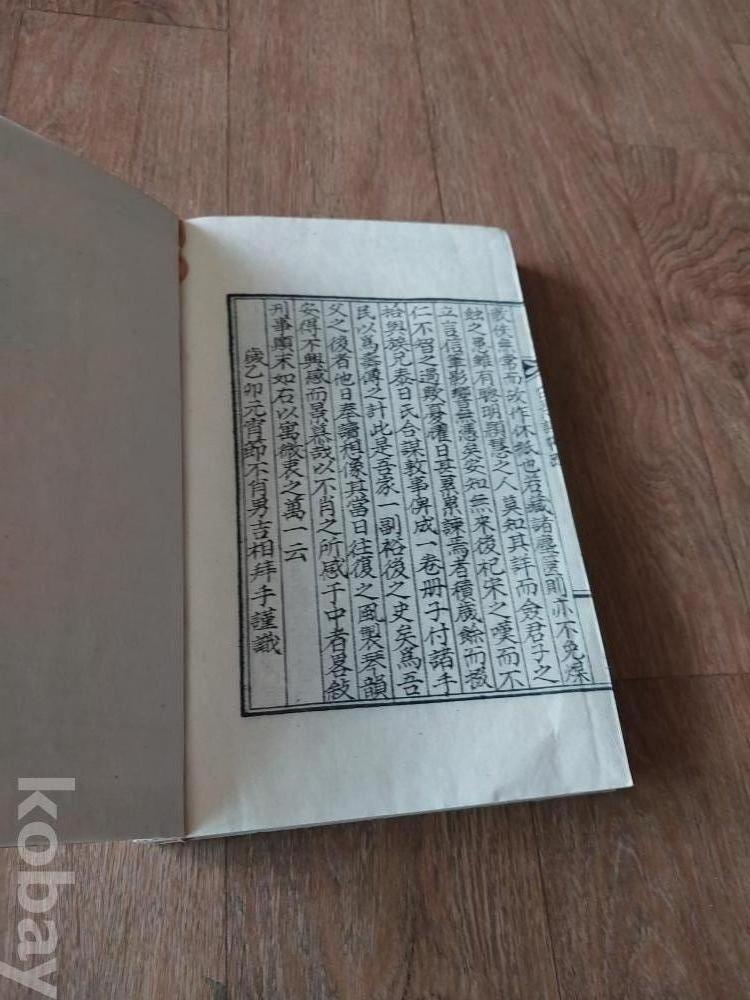 散佚無常而或作休紙也若藏諸塵室則亦不免燥
蝕之 雖有聰明穎慧之人莫知其詳而僉君子之
立言信筆影響無憑矣安知無來後杞宋之嘆而不
仁不智之過歟憂懼日甚累諫焉者積歲餘而歲
拾與族兄泰日氏合謀敦事俾成一卷冊子付諸手
民以爲壽傳之計此是吾家一副裕後之史矣爲吾
父之後者他日奉讀想像其當日往復之風製琴韻
安得不興感而景慕哉以不肖之所感于中者畧敍
刊事顚末如右以寓微衷之萬一云
歲乙卯元宵節不肖男吉相拜手謹識
kobay